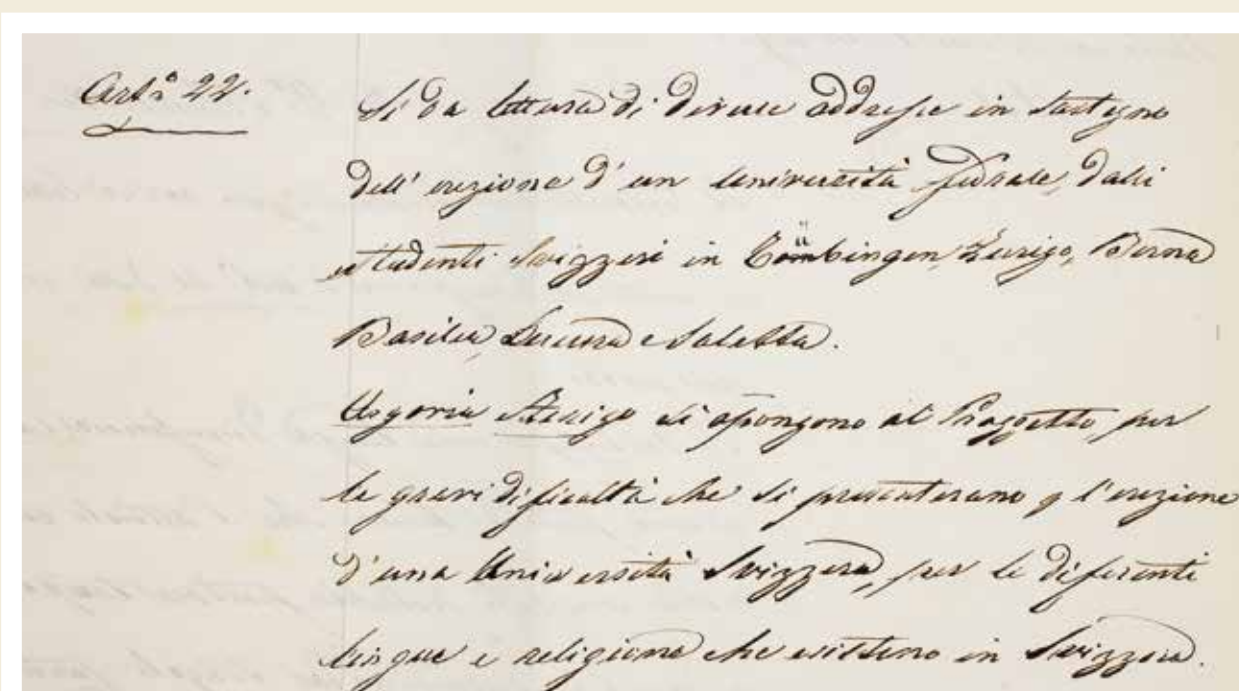 Art.º 22.
Si da lettura di diverse addresse in sostegno
dell' erezione d' un università federale, dalli
studenti Svizzeri in Tübingen, Zurigo, Berna
Basilea, Lucerna e Soletta.
si opongono al Progetto per
le gravi dificoltà che si presenterano p l'erezione
d'una Università Svizzera, per le diferenti
lingue e religione che esistono in Svizzera.